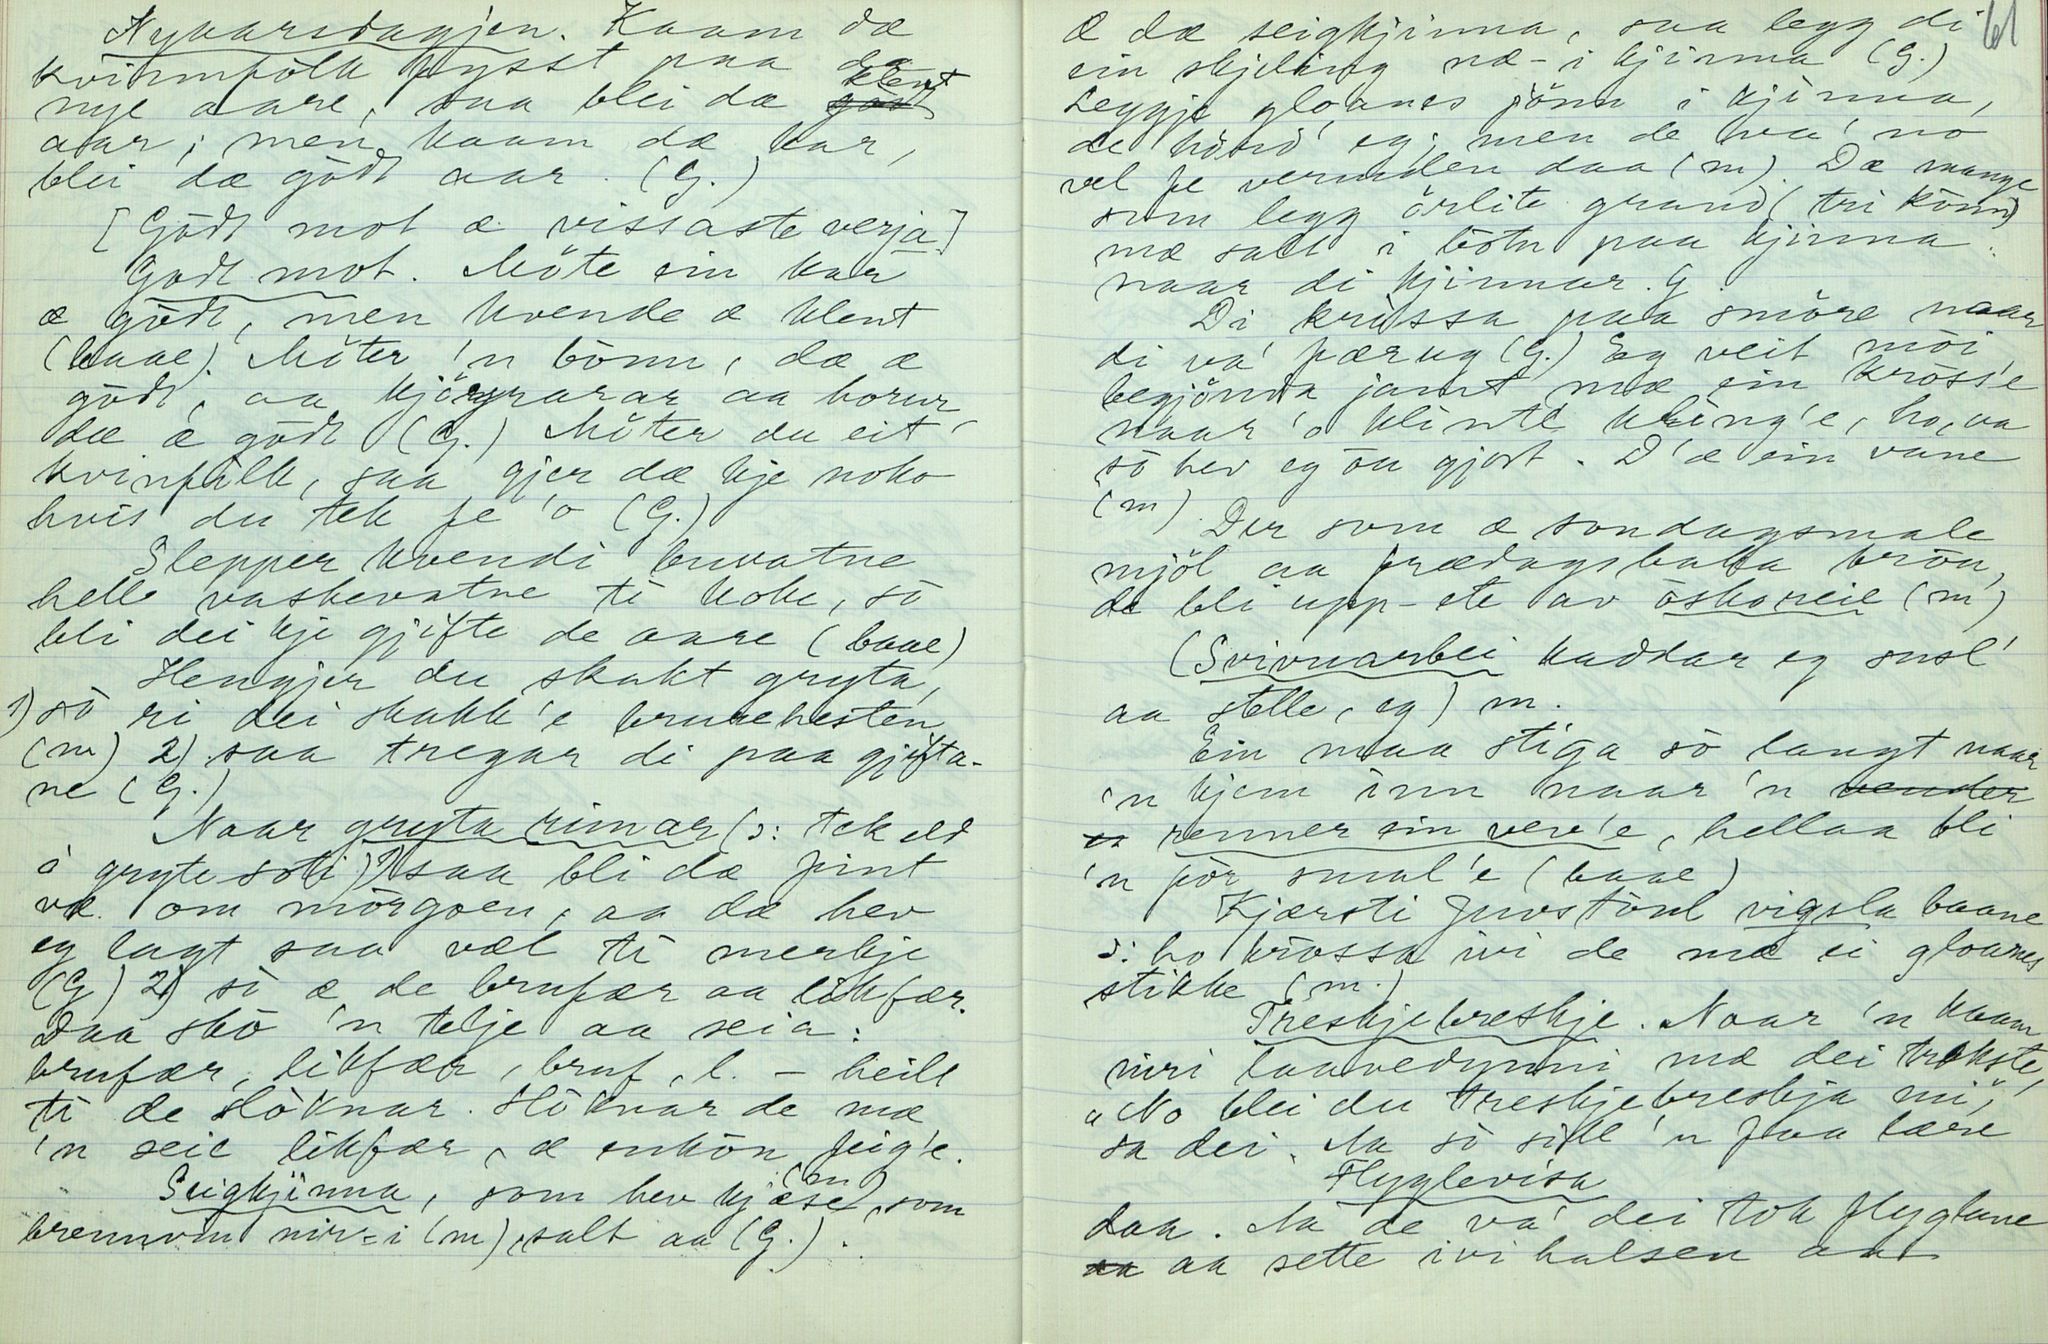 Nyaarsdagjen. Kaam dæ
kvinnfolk fysst paa da
nye aare, saa blei dæ godt klent
aar; men kaam dæ kar,
blei dæ godt aar. (G.)
[Godt mot æ vissaste verja]
Godt mot. Möte ein kar
æ godt, men kvende æ klent
(baae). Möter 'n bönn, dæ æ
godt, aa horur,
dæ æ godt (G.) Möter du eit
kvinfolk, saa gjer dæ kje noko
hvis du tek fe 'o (G.)
Slepper kvendi buvatne
hell vaskevatne ti koke, so
bli dei kje gjifte de aare (baae)
Hengjer du skakt gryta,
1) so ri dei skakk'e brurehesten
(m) 2) saa tregar di paa gjifta-
ne (G.)
Naar gryta rimar (ɔ: tek eld
i gryte soti) 1) saa bli dæ fint
vé om mörgoen, aa dæ hev
eg lagt saa væl ti merkje
(G) 2) so æ de brufær aa likfær.
Daa sko 'n telje aa seia:
brufær, likfær, bruf, l. – heilt
ti de sloknar. Sloknar de mæ
'n seie likfær, æ enkön feig'e.
Seigkjinna, som hev kjæse (m), som
brennvin nir-i (m), salt aa (G.).
61
Æ dæ seigkjinna, saa legg di
ein skjeling næ-i kjinna (G.)
Leggje gloanes jönn i kjinna,
de hörd' eg; men de va' no
vel fe verm'den daa (m). Dæ mange
som legg örlite grand (tri könn)
mæ salt i botn paa kjinna
naar di kjinnar. G.
Di krussa paa smöre naar
di va' færug (G.) Eg veit moi
begjönda jamt mæ ein kross'e
naar 'o klinte kling'e, ho, aa
so hev eg öu gjort. D'æ ein vane
(m)
Der som æ sondagsmale
mjöl aa frædagsbaka bröu,
de bli upp-ete av oskoreie (m)
(Svivuarbei kaddar eg susl'
aa stelle, eg) m.
Ein maa stiga so langt naar
'n kjem inn naar 'n vender
renner ein vev'e, hellaa bli
'n för smal'e (baae)
Kjærsti Juvstöul vigsla baane
ɔ: ho krossa ivi de mæ ei gloanes
stikke (m.)
Treskjebreskje. Naar 'n kaam
niri laavedynni mæ dei trokste,
"No blei du treskjebreskja mi",
sa dei. Aa so sille 'n faa lære
Flyglevisa
daa. Aa de va' dei tok flyglane
aa aa sette ivi halsen aa